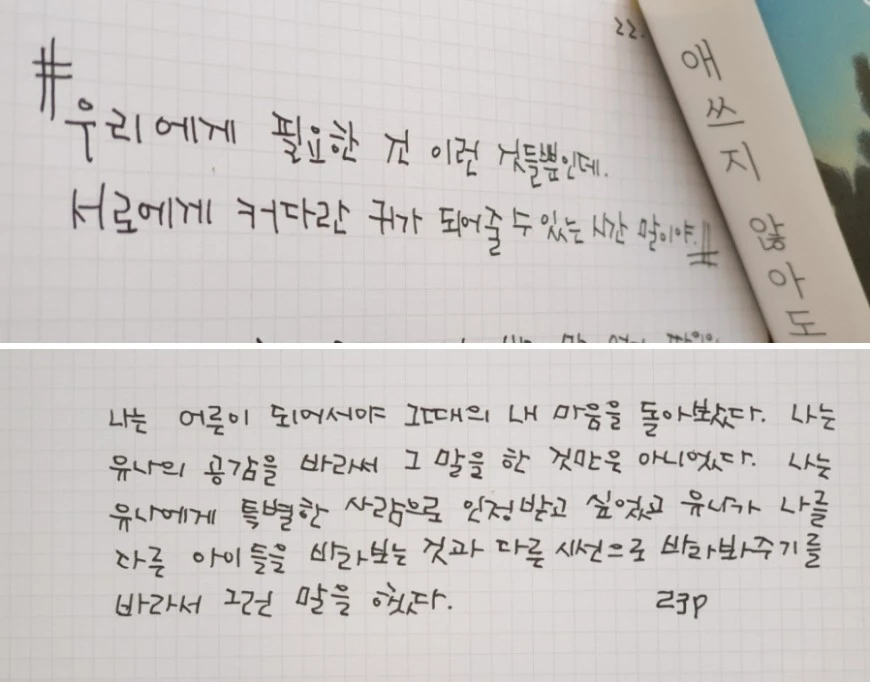 22.
#
우리에게 필요한 건 이런 것들뿐인데.
서로에게 커다란 귀가 되어줄 수 있는 시간 말이야.
애쓰지 않아도
나는 어른이 되어서야 그때의 내 마음을 돌아보았다. 나는
유나의 공감을 바라서 그 말을 한 것만은 아니었다. 나는
유나에게 특별한 사람으로 인정받고 싶었고 유나가 나를
다른 아이들을 바라보는 것과 다른 시선으로 바라봐주기를
바라서 그런 말을 했다. 23p